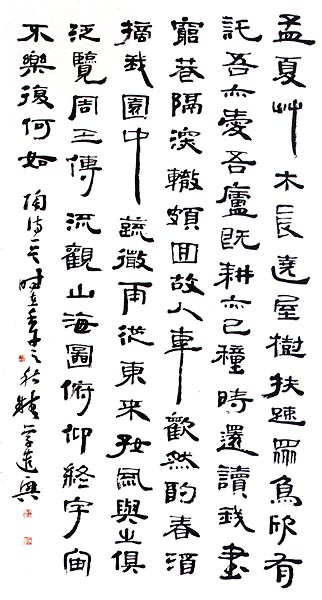 孟夏艸木長遶屋樹扶疎眾鳥欣有
託吾亦愛吾廬既耕亦已種時還讀我書
窮巷隔深轍頗回故人車歡然酌春酒
摘我園中蔬微雨從東來好風與之俱
泛覽周王傳流觀山海圖俯仰終宇宙
不樂復何如 陶詩一首時在之秋